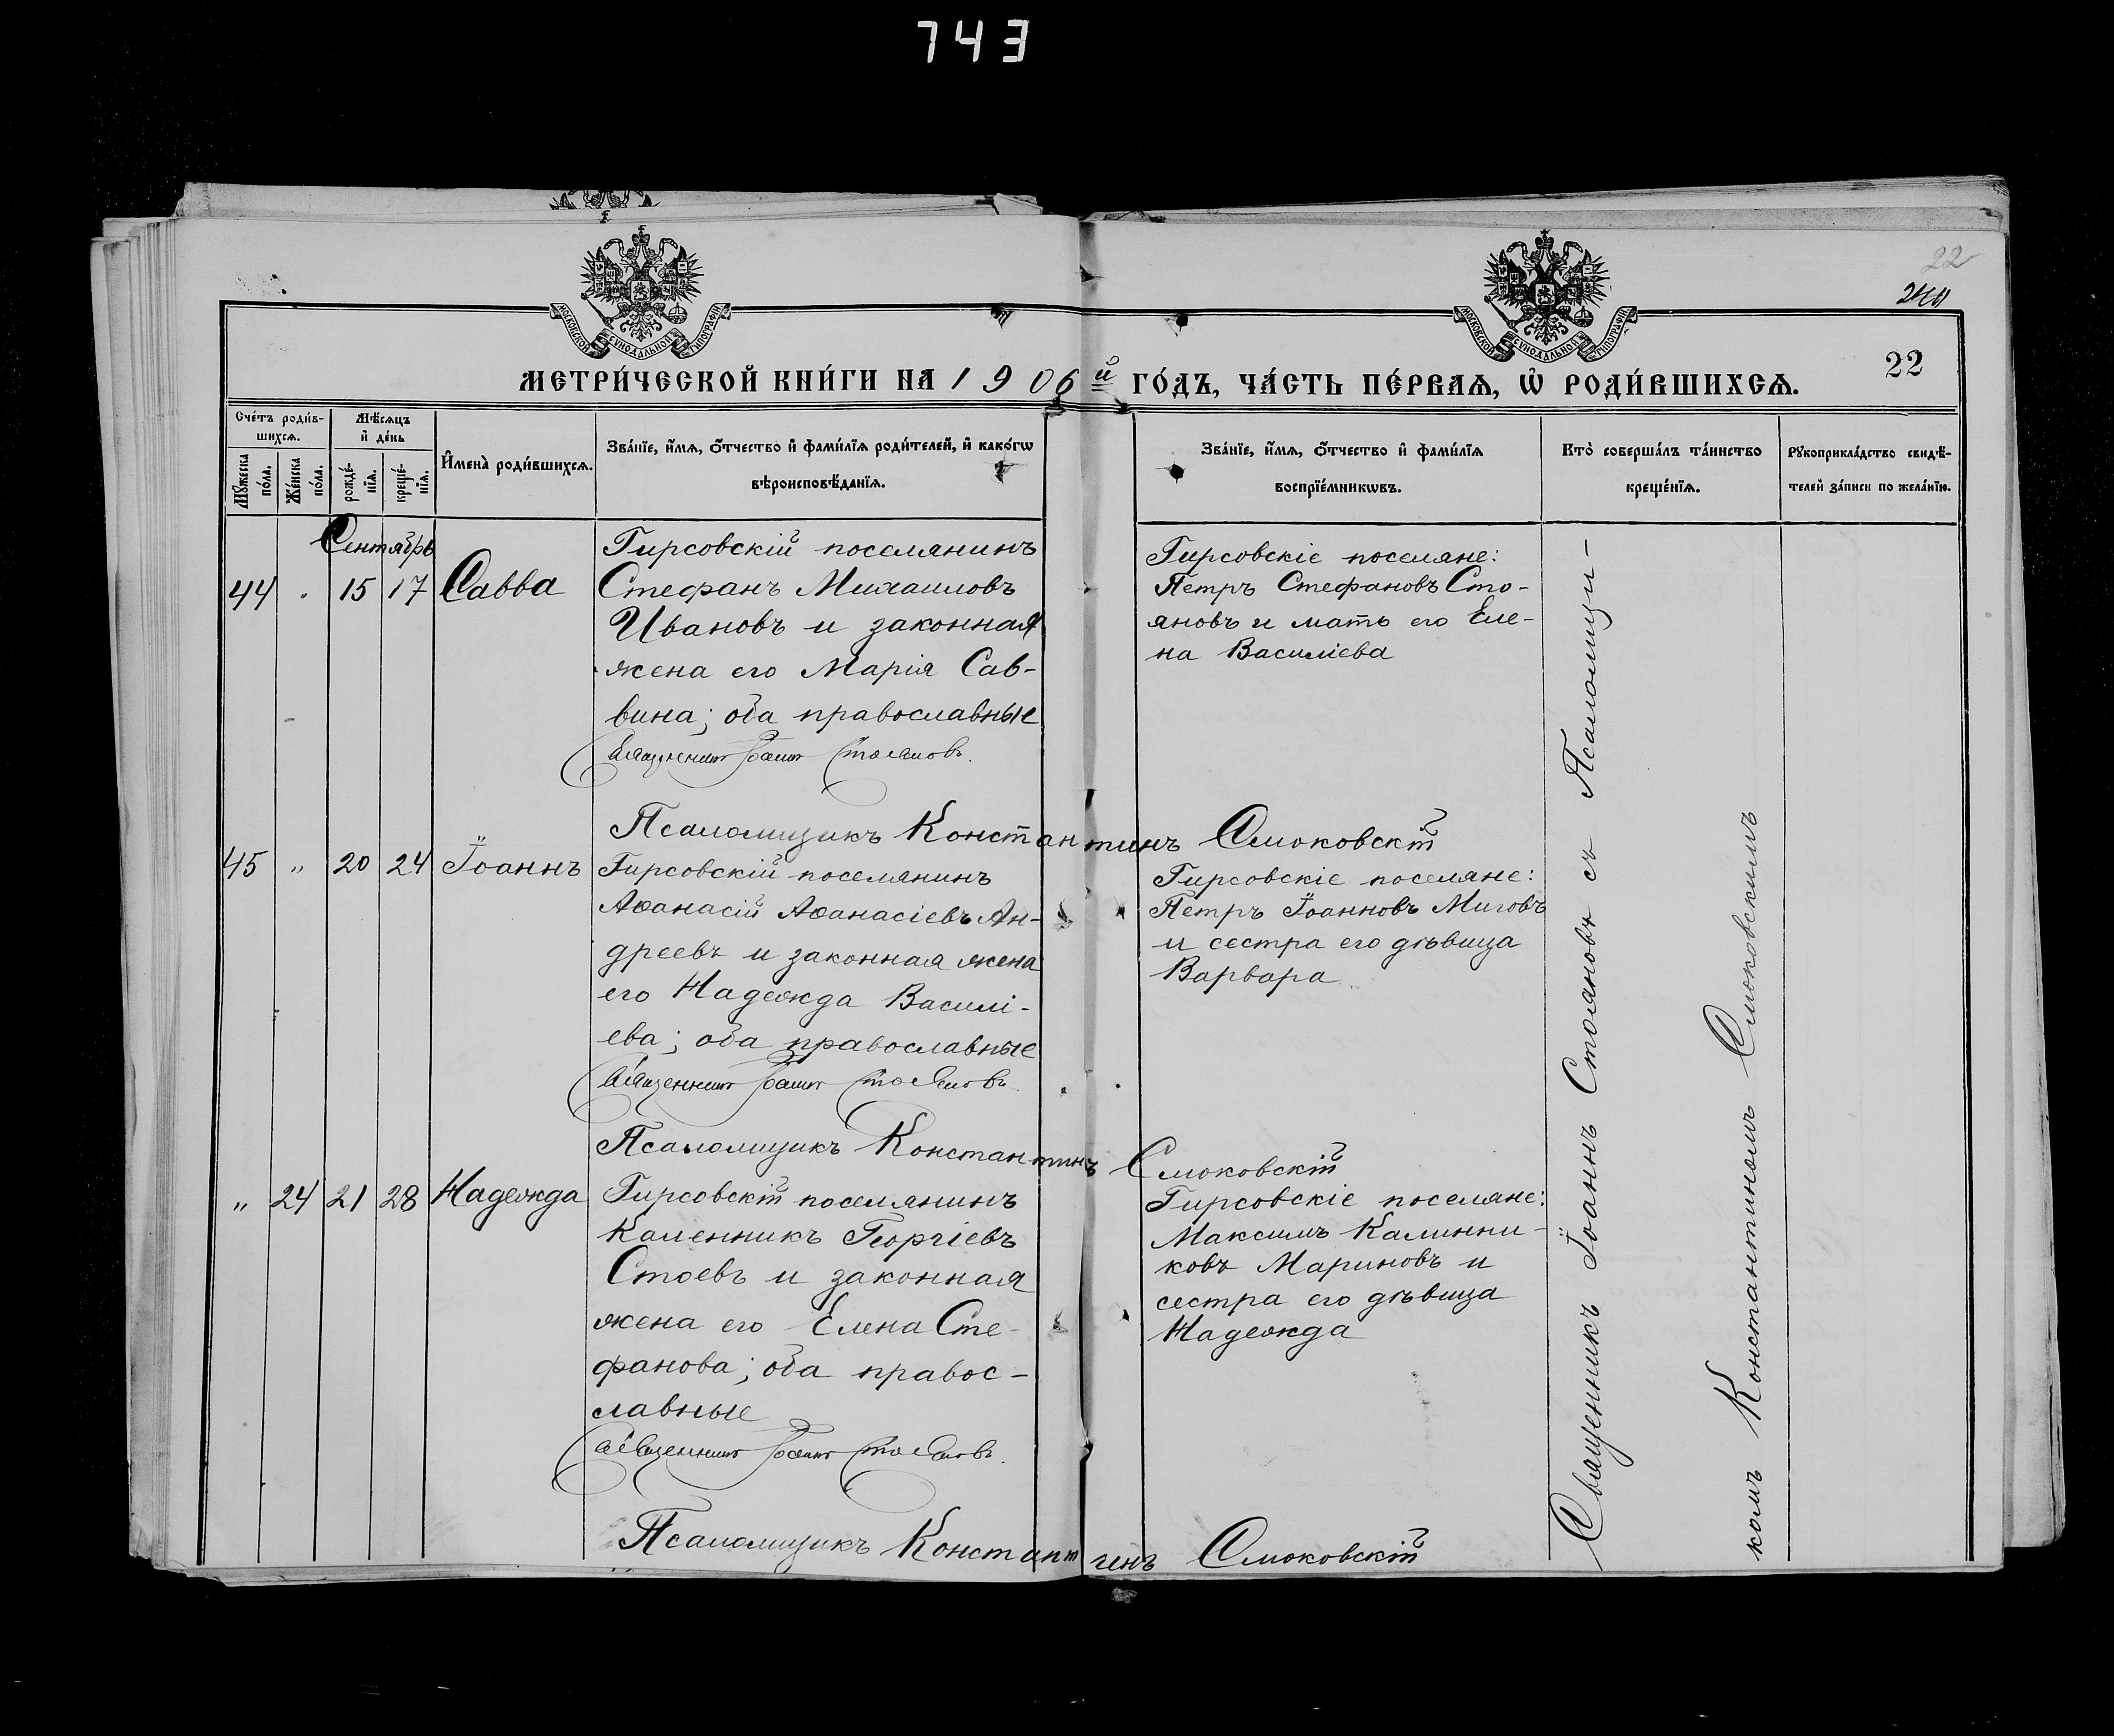 743
22
240
МОСКОВСКОЙ СѴНОДАЛЬНОЙ ТИПОГРАФІИ
МОСКОВСКОЙ СѴНОДАЛЬНОЙ ТИПОГРАФІИ
22
МЕТРИ́ЧЕСКОЙ КНИ́ГИ НА 1906й ГО́ДЪ, ЧА́СТЬ ПЕ́РВАѦ, Ѡ҆ РОДИ́ВШИХСѦ.
Сче́тъ роди́в-
шихсѧ.
Мѣ́сѧцъ
и҆ де́нь
Мꙋ́жеска по́ла.
Же́нска по́ла.
рожде́-
нїѧ.
креще́-
нїѧ.
И҆мена̀ роди́вшихсѧ.
Зва́нїе, и҆́мѧ, ѻ҆́тчество и҆ фами́лїѧ роди́телей, и҆ како́гѡ
вѣроисповѣ́данїѧ.
Зва́нїе, и҆́мѧ, ѻ҆́тчество и҆ фами́лїѧ
воспрїе́мникѡвъ.
Кто̀ соверша́лъ та́инство
креще́нїѧ.
Рꙋкоприкла́дство свидѣ́-
телей за́писи по жела́нїю.
Сентябрь
44 „ 15 17 Савва
Гирсовскій поселянинъ
Стефанъ Михаиловъ
Ивановъ и законная
жена его Марія Сав-
вина; оба православные
Священникъ Іоаннъ Стояновъ.
Гирсовскіе поселяне:
Петръ Стефановъ Сто-
яновъ и мать его Еле-
на Василіева
Псаломщикъ Константинъ Смоковскій
45 „ 20 24 Іоаннъ
Гирсовскій поселянинъ
Аѳанасій Аѳанасіевъ Ан-
дреевъ и законная жена
его Надежда Василі-
ева; оба православные
Священникъ Іоаннъ Стояновъ
Гирсовскіе поселяне:
Петръ Іоанновъ Миговъ
и сестра его дѣвица
Варвара
Псаломщикъ Константинъ Смоковскій
„ 24 21 28 Надежда
Гирсовскій поселянинъ
Каленникъ Георгіевъ
Стоевъ и законная
жена его Елена Сте-
фанова; оба правос-
лавные
Священникъ Іоаннъ Стояновъ.
Гирсовскіе поселяне:
Максимъ Калинни-
ковъ Мариновъ и
сестра его дѣвица
Надежда
Псаломщикъ Константинъ Смоковскій
Священникъ Іоаннъ Стояновъ съ Псаломщи-
комъ Константиномъ Смоковскимъ